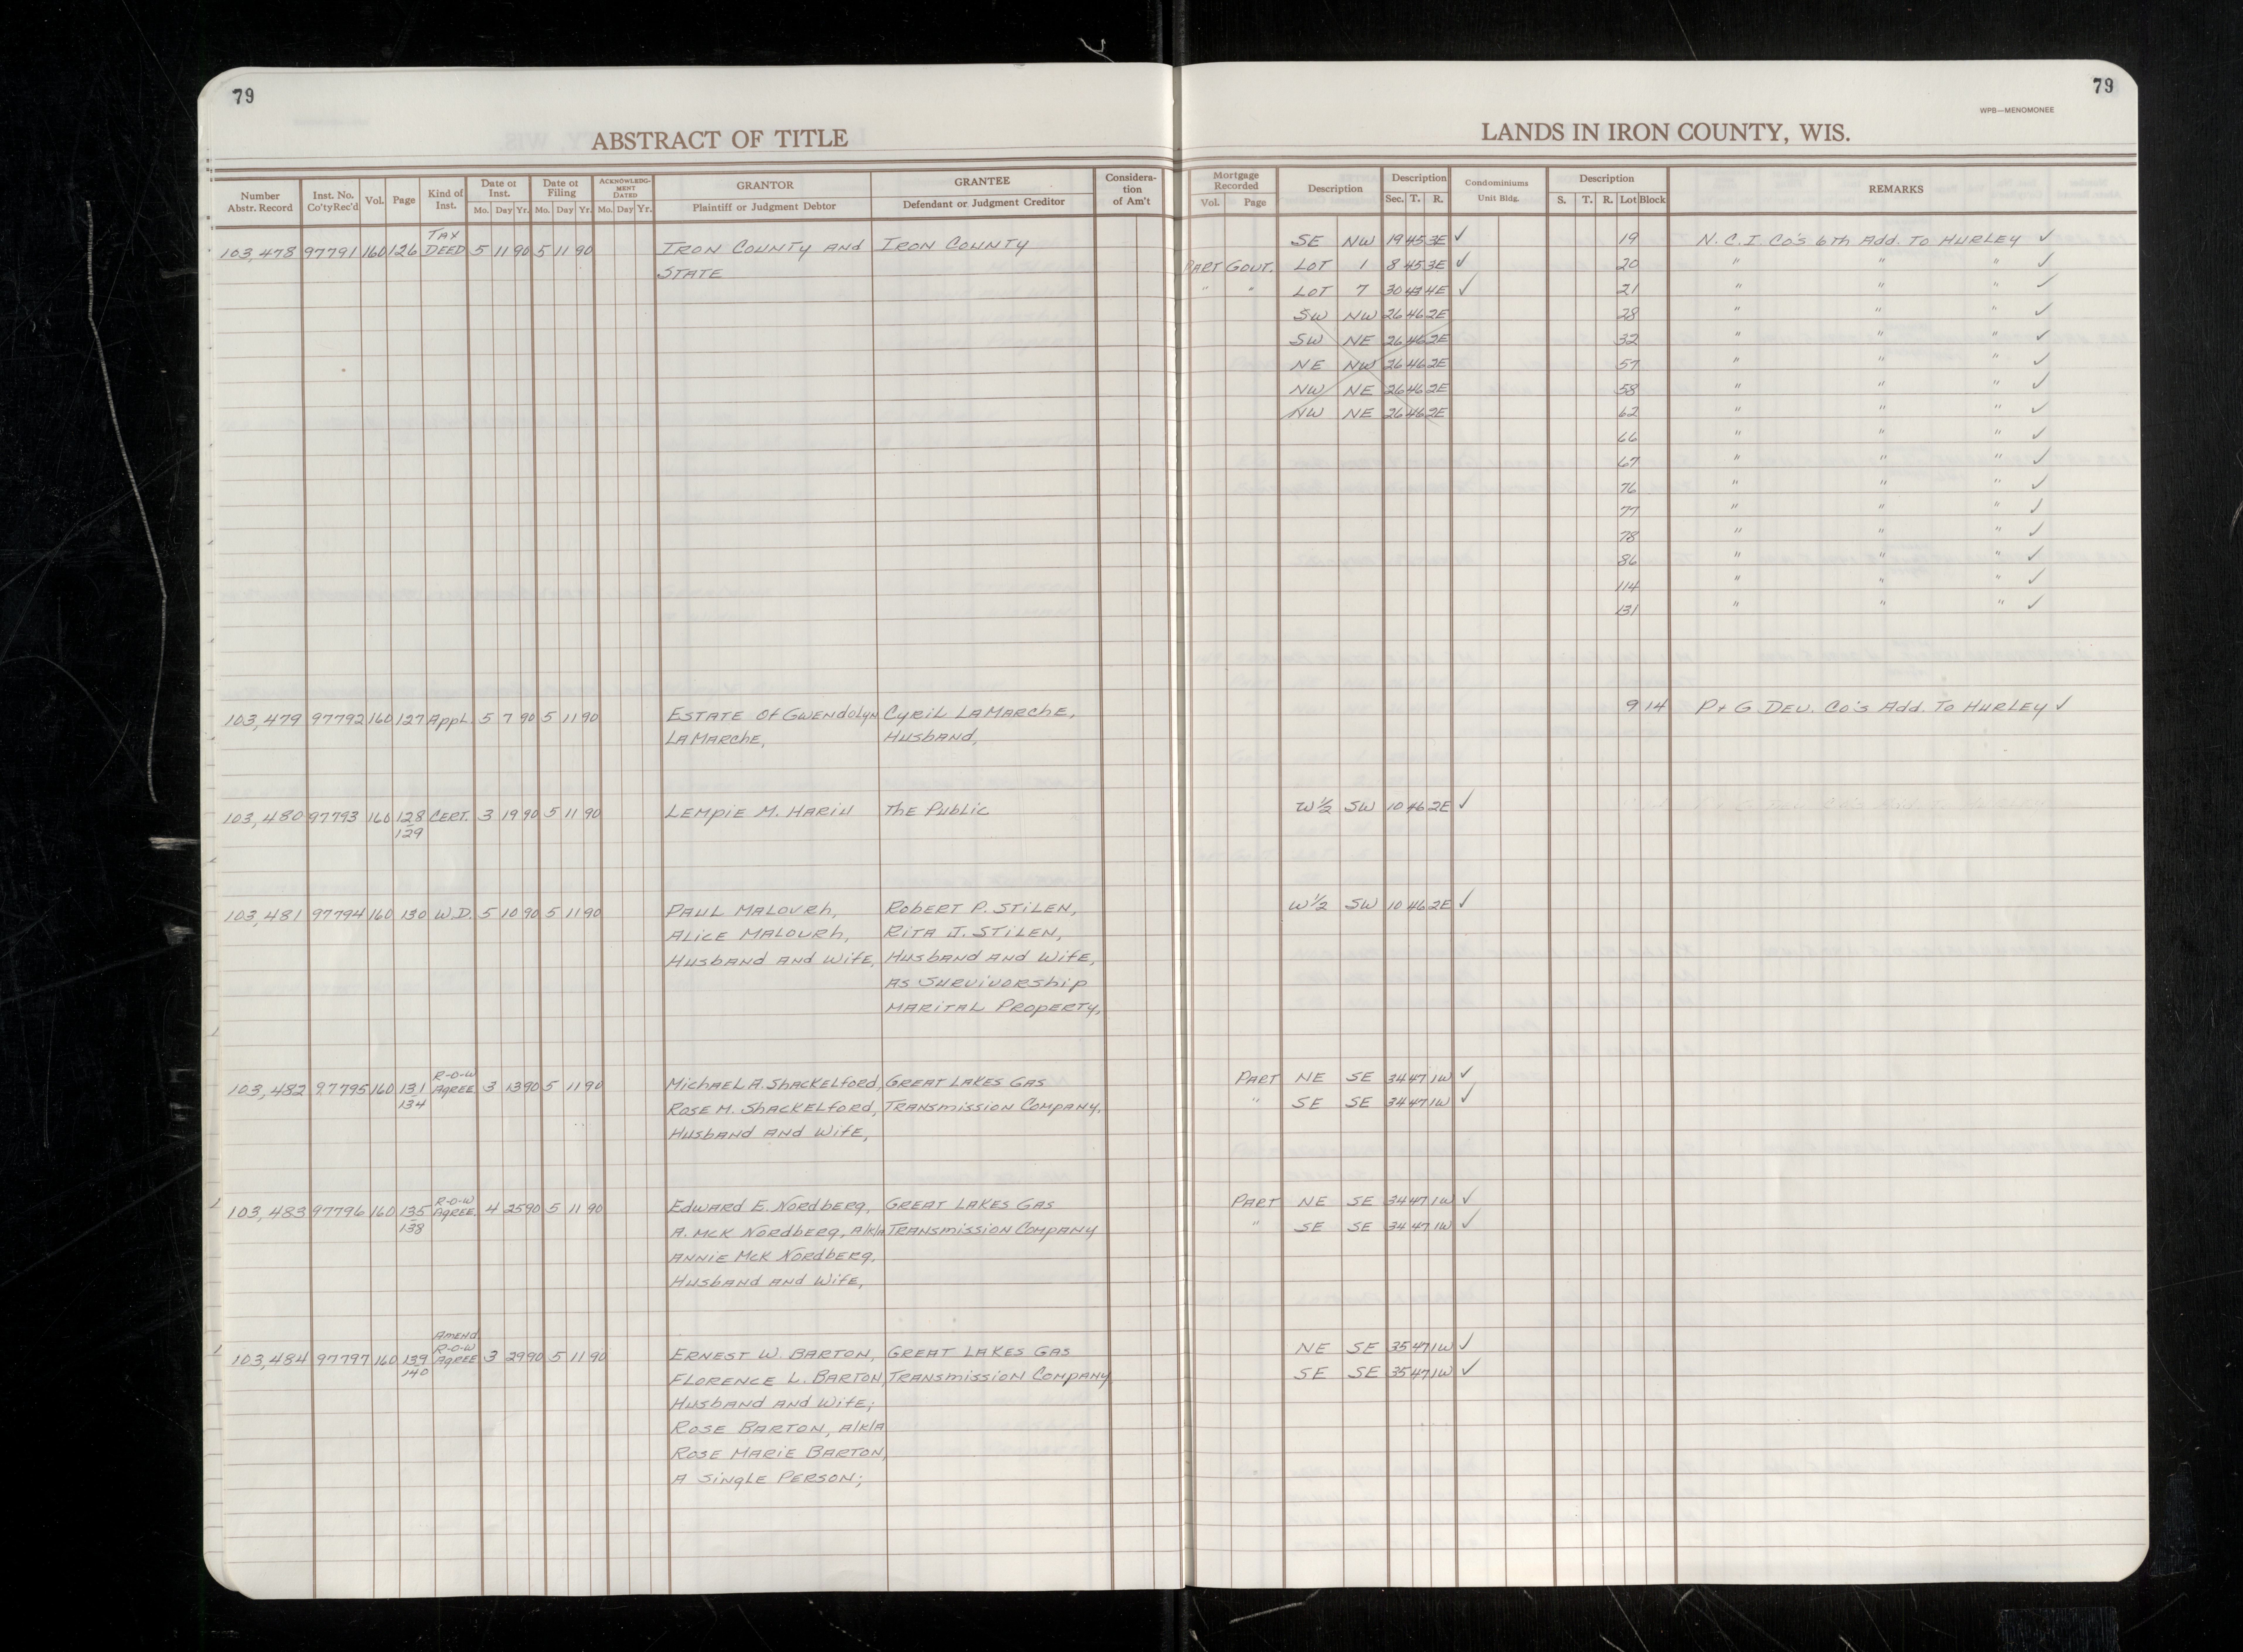 79
ABSTRACT OF TITLE
Number Abstr. Record | Inst. No. Co'tyRec'd | Vol. | Page | Kind of Inst. | Date of Inst. Mo. Day Yr. | Date of Filing Mo. Day Yr. | ACKNOWLEDG-MENT DATED Mo. Day Yr. | GRANTOR Plaintiff or Judgment Debtor | GRANTEE Defendant or Judgment Creditor | Considera-tion of Am't
103,478 97791 160 126 TAX DEED 5 11 90 5 11 90 IRON COUNTY AND IRON COUNTY
STATE
103,479 97792 160 127 Appl. 5 7 90 5 11 90 ESTATE Of GWENdolyn Cyril LAMARChE,
LAMARChE, HusbAND,
103,480 97793 160 128 CERT. 3 19 90 5 11 90 LEMpiE M. The Public
129
103,481 97794 160 130 W.D. 5 10 90 5 11 90 PAUL MALOVRh, RobERT P. STiLEN,
ALiCE MALOVRh, RiTA J. STiLEN,
HusbAND AND WifE, HusbAND AND WifE,
AS SURVIVORShip
MARITAL PROPERTY,
103,482 97795 160 131 R-O-W AgREE 3 13 90 5 11 90 MichAEL A. ShACKELfORd, GREAT LAKES GAS
134 ROSE M. ShACKELfORd, TRANSmission COmpANY,
HusbAND AND WifE,
103,483 97796 160 135 R-O-W AgREE 4 25 90 5 11 90 EdWARd E. NORdbERg, GREAT LAKES GAS
138 A. McK NORdbERg, A/K/A TRANSmission COmpANY
ANNIE McK NORdbERg,
HusbAND AND WifE,
103,484 97797 160 139 AmENd. R-O-W AgREE 3 29 90 5 11 90 ERNEST W. BARTON, GREAT LAKES GAS
140 FLORENCE L. BARTON, TRANSmission COmpANY
HusbAND AND WifE;
ROSE BARTON, A/K/A
ROSE MARiE BARTON,
A SiNglE PERSON;
79
WPB—MENOMONEE
LANDS IN IRON COUNTY, WIS.
Mortgage Recorded Vol. Page | Description | Description Sec. T. R. | Condominiums Unit Bldg. | Description S. T. R. Lot Block | REMARKS
SE NW 19 45 3E ✓ 19 N.C.I. Co's 6th Add. To HURLEY ✓
PART GOVT. LOT 1 8 45 3E ✓ 20 " " " ✓
" " LOT 7 30 43 4E ✓ 21 " " " ✓
SW NW 26 46 2E 28 " " " ✓
SW NE 26 46 2E 32 " " " ✓
NE NW 26 46 2E 57 " " " ✓
NW NE 26 46 2E 58 " " " ✓
NW NE 26 46 2E 62 " " " ✓
66 " " " ✓
67 " " " ✓
76 " " " ✓
77 " " " ✓
78 " " " ✓
86 " " " ✓
114 " " " ✓
131 " " " ✓
9 14 P+G DEV. Co's Add. To HURLEY ✓
W 1/2 SW 10 46 2E ✓
W 1/2 SW 10 46 2E ✓
PART NE SE 34 47 1W ✓
" SE SE 34 47 1W ✓
PART NE SE 34 47 1W ✓
" SE SE 34 47 1W ✓
NE SE 35 47 1W ✓
SE SE 35 47 1W ✓